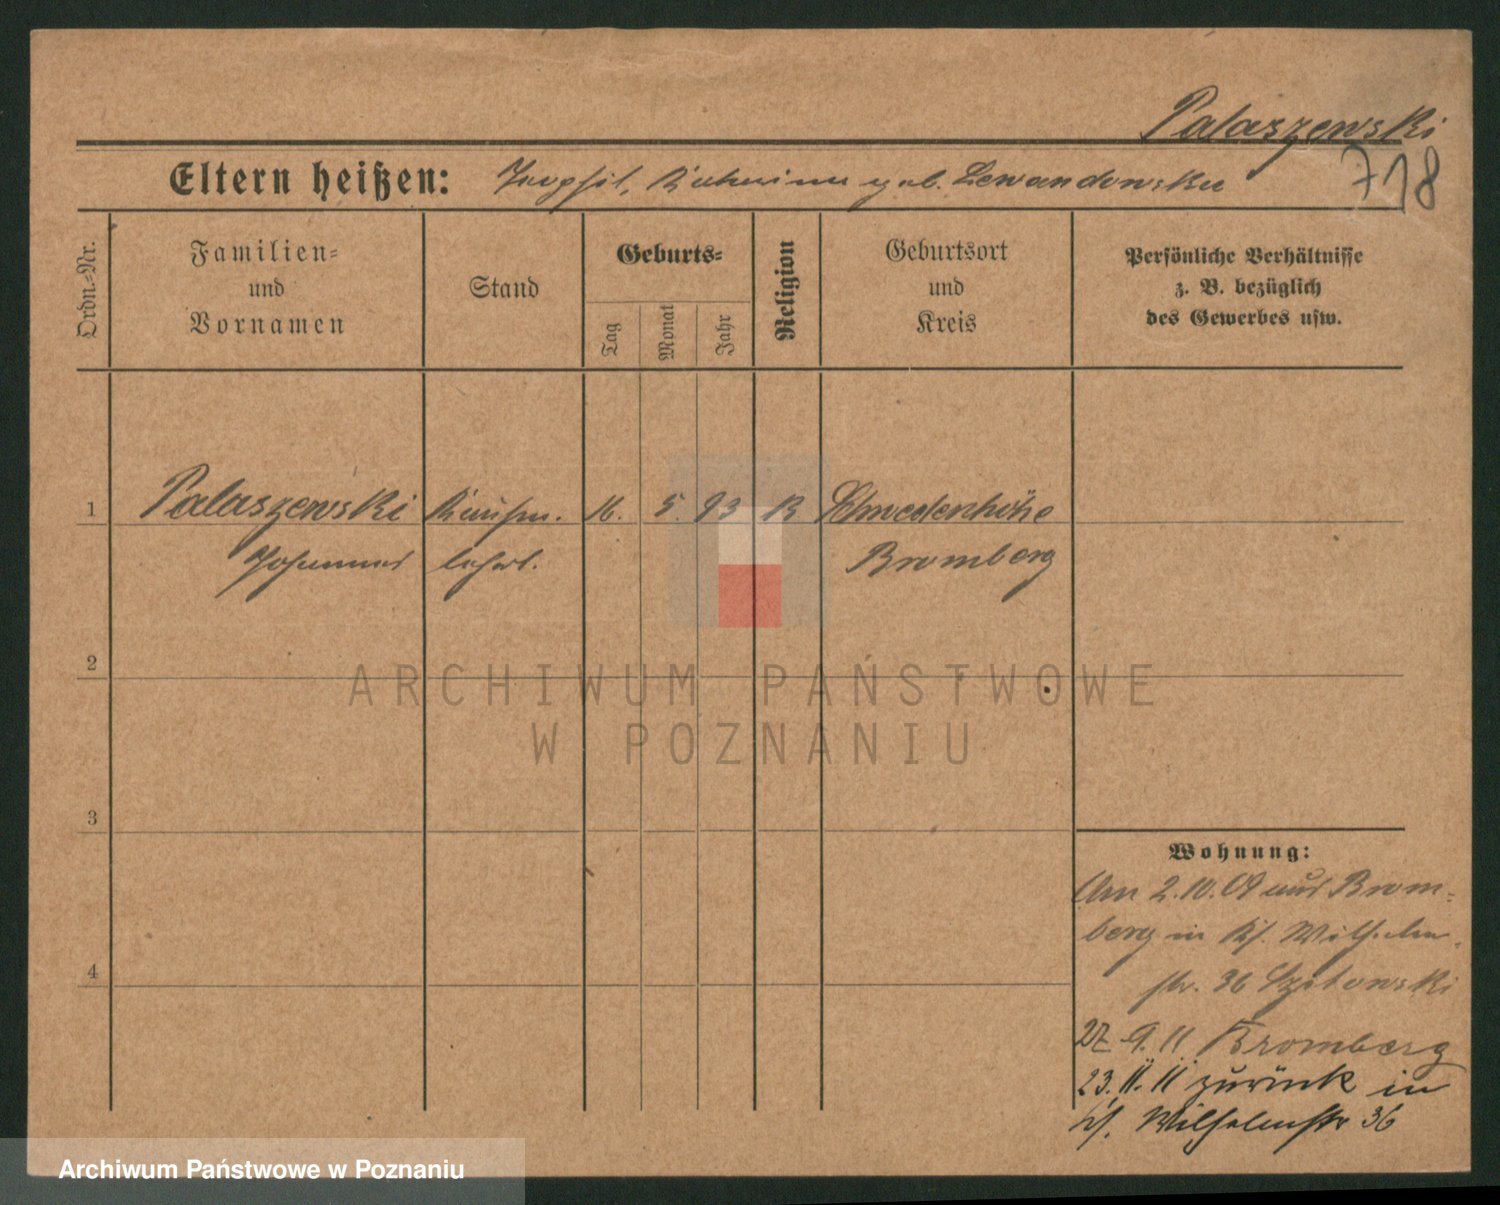 Palaszewski
718
Eltern heißen: Joseph, Katharina geb. Lewandowska
Ordn.-Nr.
Familien-
und
Vornamen
Stand
Geburts-
Tag
Monat
Jahr
Religion
Geburtsort
und
Kreis
Persönliche Verhältnisse
z. B. bezüglich
des Gewerbes usw.
1 Palaszewski Kaufm. 16. 5. 93 K Schwedenhöhe
Johannes lehrl. Bromberg
2
3
4
Wohnung:
Am 2.10.09 aus Brom-
berg in Wilhelm-
str. 36
27. 9. 11 Bromberg
23. 11. 11 zurück in
Wilhelmstr 36
ARCHIWUM PAŃSTWOWE
W POZNANIU
Archiwum Państwowe w Poznaniu